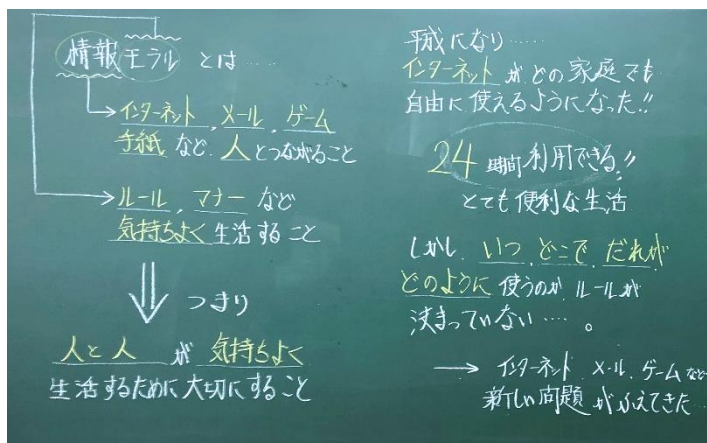 情報モラル とは……
インターネット、メール、ゲーム
手紙 など 人とつながること
ルール、マナー など
気持ちよく 生活すること
つまり
人と人 が 気持ちよく
生活するために大切にすること
平成になり……
インターネット がどの家庭でも
自由に使えるようになった!!
24時間利用できる!!
とても便利な生活
しかし、いつ、どこで、だれが
どのように 使うのか、ルールが
決まっていない……。
→ インターネット、メール、ゲームなど…
新しい問題 がふえてきた…